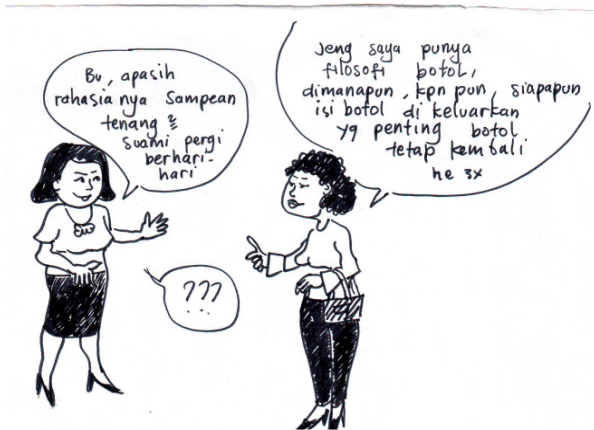 Bu, apasih
rahasia nya Sampean
tenang²
suami pergi
berhari-
hari
Jeng saya punya
filosofi botol,
dimanapun, kpn pun, siapapun
isi botol di keluarkan
yg penting botol
tetap kembali
he 3x
???
...